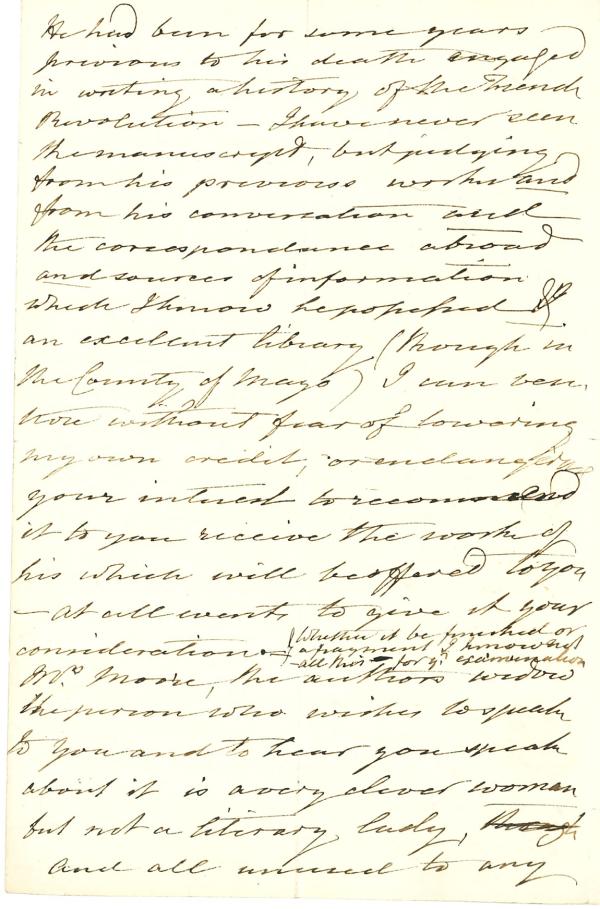 He had been for some years
previous to his death engaged
in writing a history of the French
Revolution – I have never seen
the manuscript, but judging
from his previous works and
from his conversation and
the correspondance abroad
and sources of information
which I know he possessed &
an excellent library (though in
the County of Mayo) I can ven-
ture without fear of lowering
my own credit, or endangering
your interest to recommend
it to you receive the work of
his which will be offered to you
– at all events to give it your
consideration –
Whether it be finished or
a fragment I know not
– all this – for yr. examination
Mrs. Moore, the authors widow
the person who wishes to speak
to you and to hear you speak
about it is a very clever woman
but not a literary lady, though
and all unused to any